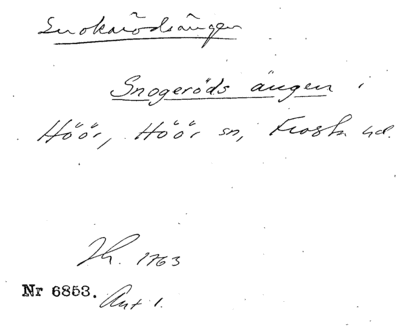 Snokarödsängen
Snogeröds ängen i
Höör, Höör sn, Frosta hd.
Th. 1763
Nr 6853. Ant 1.